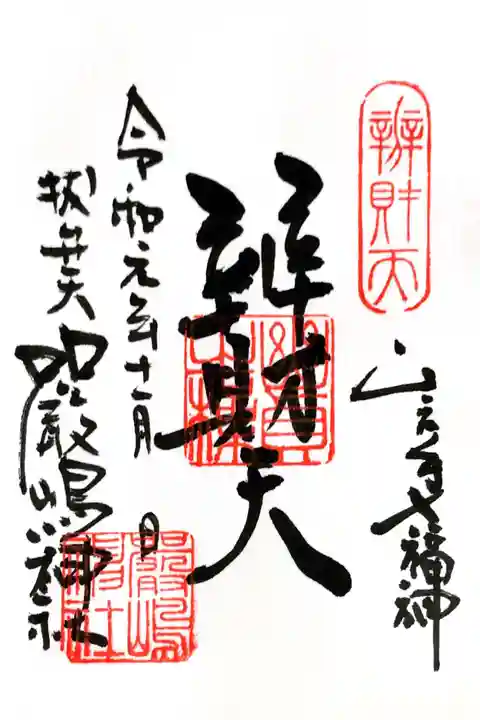 辨財天
山之手七福神
辨財天
令和元年十一月 日
抜弁天
嚴嶋神社
嚴嶋神社